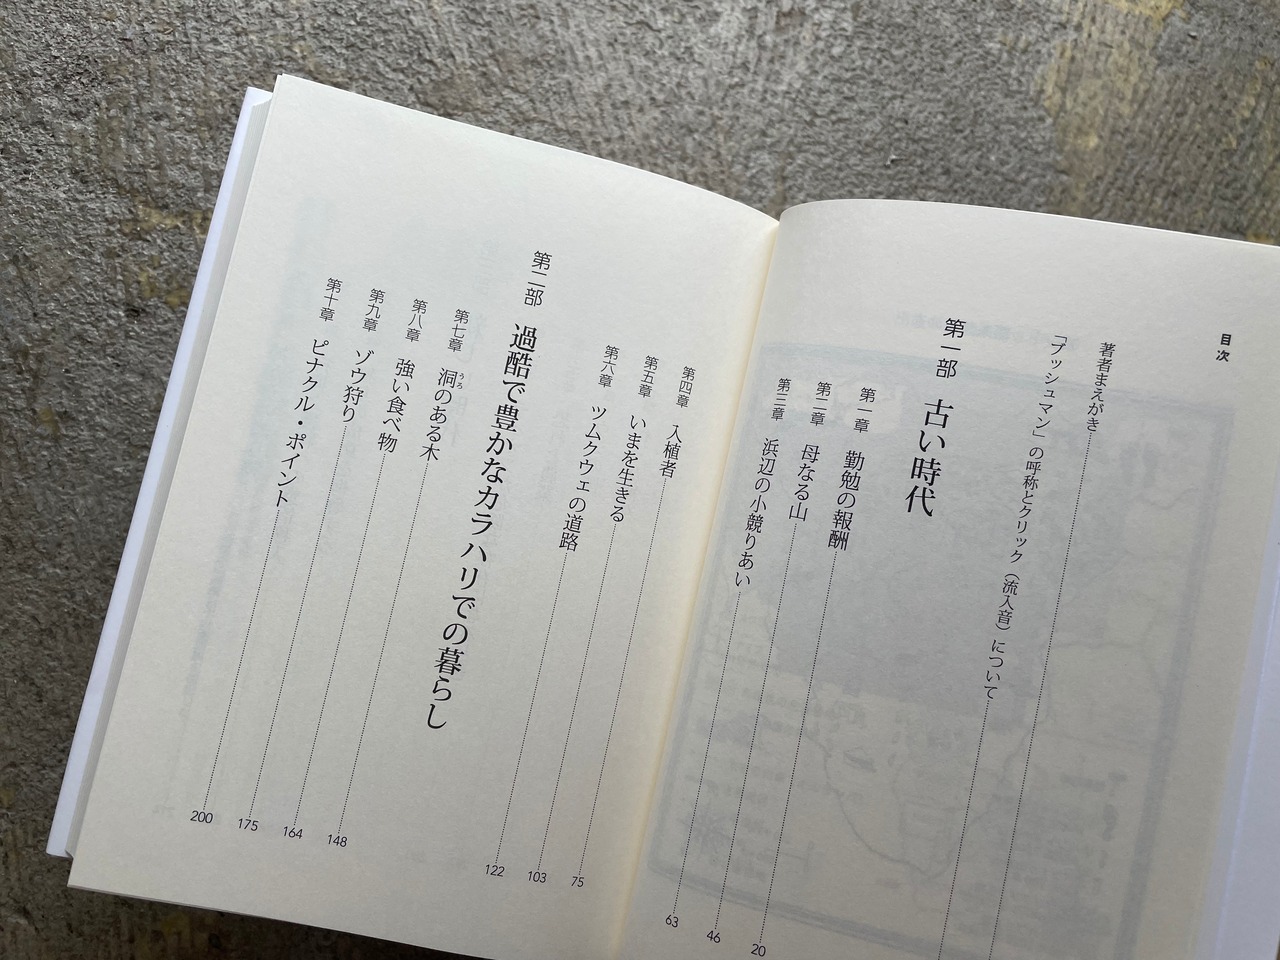 目次
著者まえがき
「ブッシュマン」の呼称とクリック（流入音）について
第一部 古い時代
第一章 勤勉の報酬 20
第二章 母なる山 46
第三章 浜辺の小競りあい 63
第四章 入植者 75
第五章 いまを生きる 103
第六章 ツムクウェの道路 122
第二部 過酷で豊かなカラハリでの暮らし
第七章 洞のある木 148
うろ
第八章 強い食べ物 164
第九章 ゾウ狩り 175
第十章 ピナクル・ポイント 200